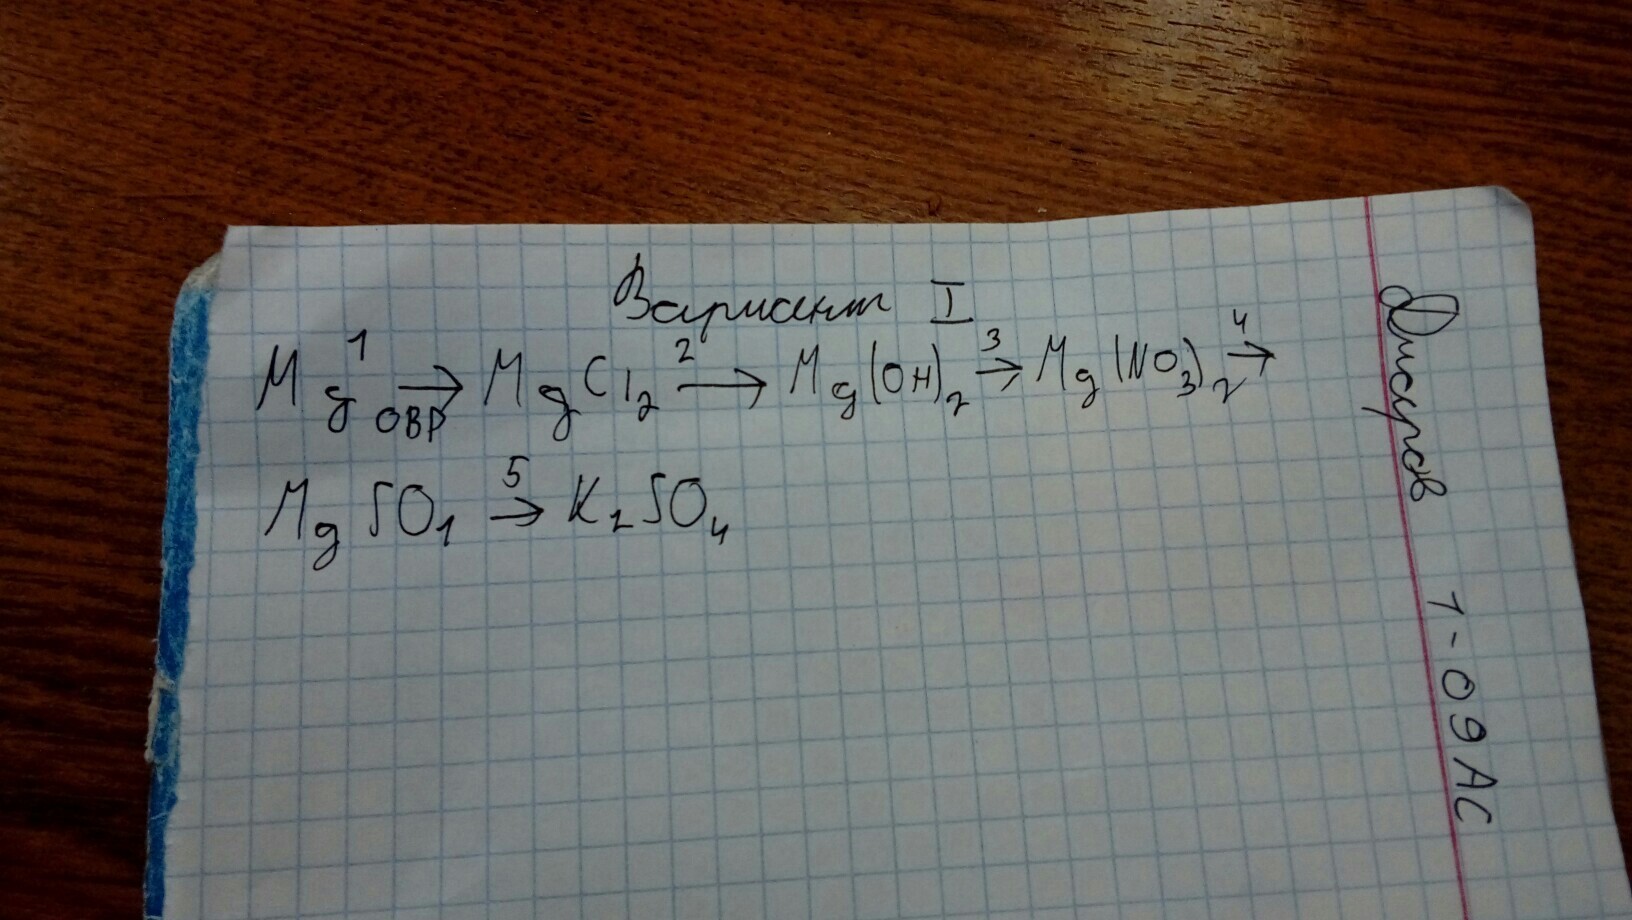 Вариант I
Mg 1→ ОВР MgCl2 2→ Mg(OH)2 3→ Mg(NO3)2 4→
MgSO4 5→ K2SO4
1-09АС